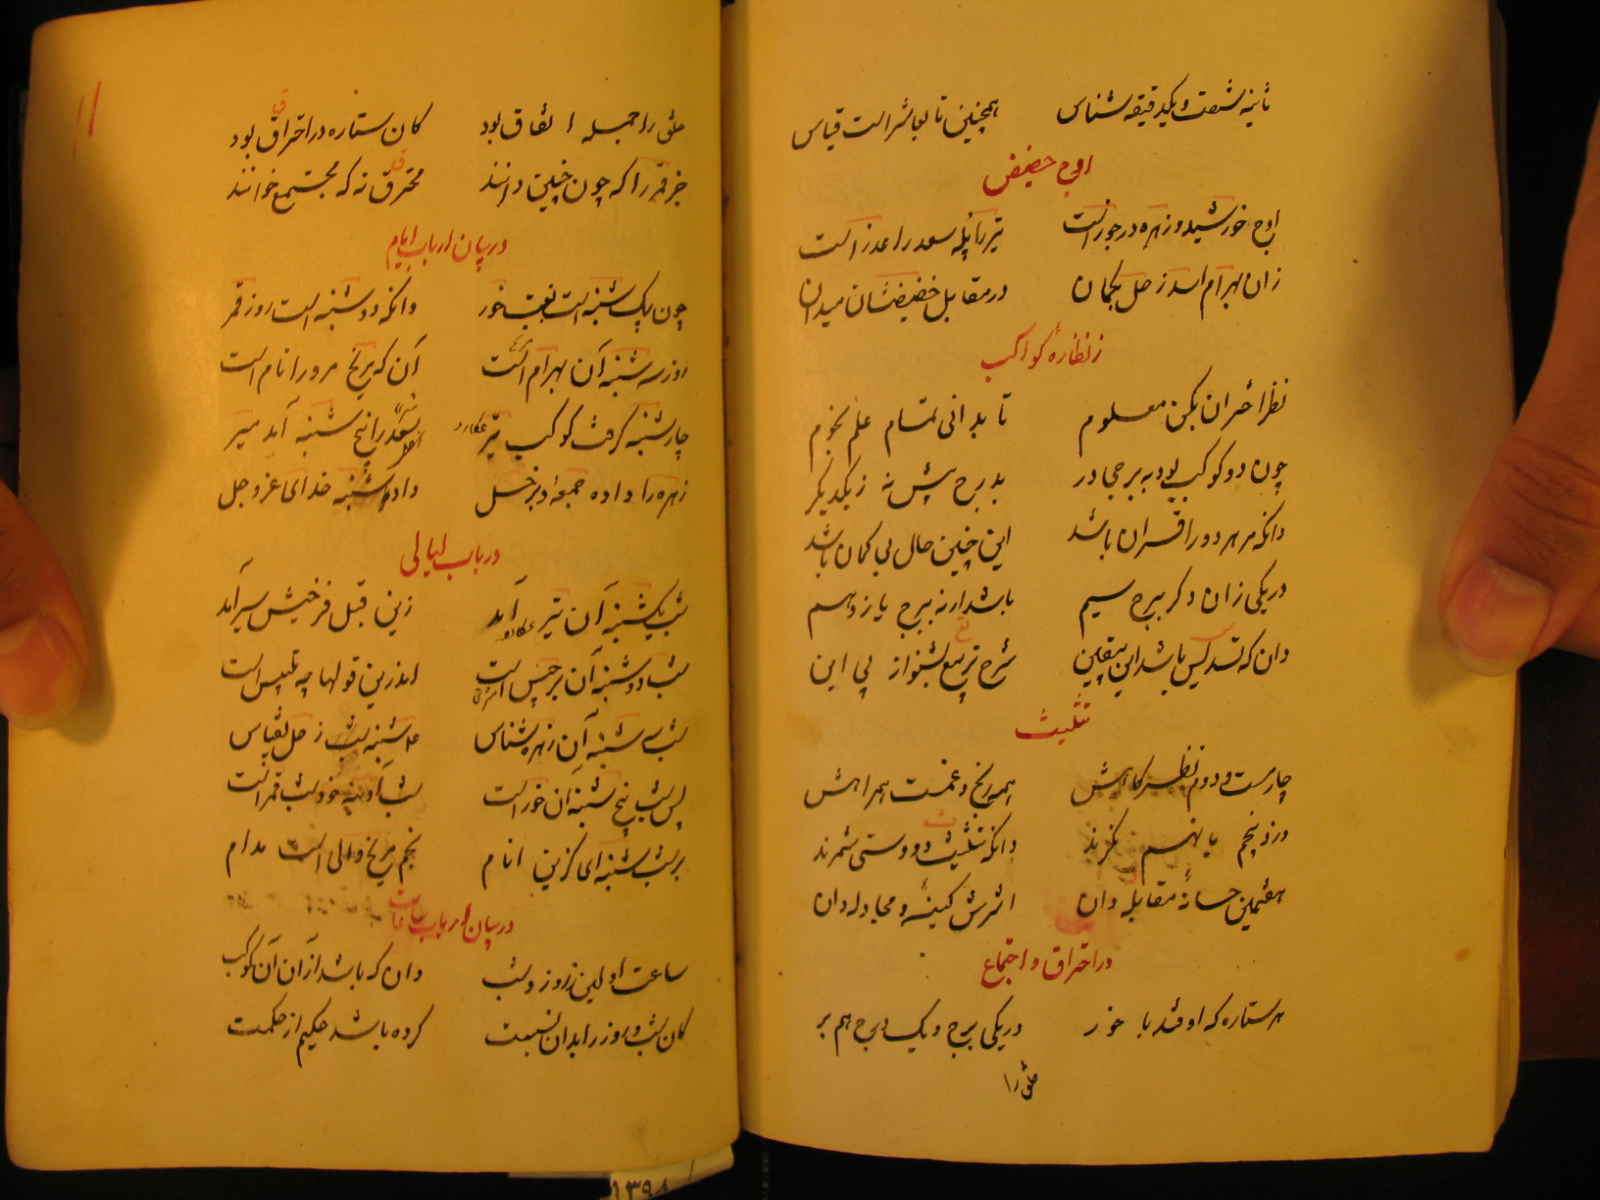 ثانیه شصت و یکدقیقه شناس همچنین تا بعاشر است قیاس
اوج حضیض
اوج خورشید و زهره در جوزاست تیر را پله سعد را عذراست
زان بهرام اسد زحل بکمان در مقابل حضیضشان میدان
نظاره کواکب
نظر اختران بکن معلوم تا بدانی تمام علم نجوم
چون دو کوکب بود به برجی در بدرج پیش نه ز یکدیگر
دانکه مر هر دو را قران باشد این چنین حال بی گمان باشد
در یکی زان دگر ببرج سیم باشد ار نه ببرج یازدهم
دان که تسدیس باشد این بیقین شرح تربیع بشنو از پی این
تثلیث
چارمست و دوم نظر کاهش همه رنج و غمست همراهش
ور ز پنجم یا نهم نگرند دانکه تثلیث و دوستی شمرند
هفتمین خانه مقابله دان اثرش کینه و مجادله دان
در احتراق و اجتماع
هر ستاره که اوفتد با خور در یکی برج و یک درج هم بر
خلق را
خلق را جمله اتفاق بود کان ستاره در احتراق بود
جز قمر را که چون چنین دانند محترق نه که مجتمع خوانند
در بیان ارباب ایام
چون یک شنبه است نعت خور وانکه دوشنبه است روز قمر
روز سه شنبه آن بهرام است آن که مریخ مر ورا نام است
چارشنبه گرفت کوکب تیر عطارد سعد را پنج شنبه آمد میر
زهره را داده جمعه و بزحل داده شنبه خدای عز و جل
در باب لیالی
شب یکشنبه آن تیر آمد زین قبل فرخیش سیر آمد
شب دوشنبه آن برجیس است اندرین قولها چه تلبیس است
شب سه شنبه آن زهره شناس شنبه شب زحل بقیاس
پس شب پنج شنبه آن خور است شب آدینه خود شب قمر است
بر شب شنبه ای گزین انام نجم مریخ والی است مدام
در بیان ارباب ساعات
ساعت اولین ز روز و شب دان که باشد از آن آن کوکب
کان شب و روز را بدان نسبت کرده باشد حکیم از حکمت
۱۱
۱۳۹۸